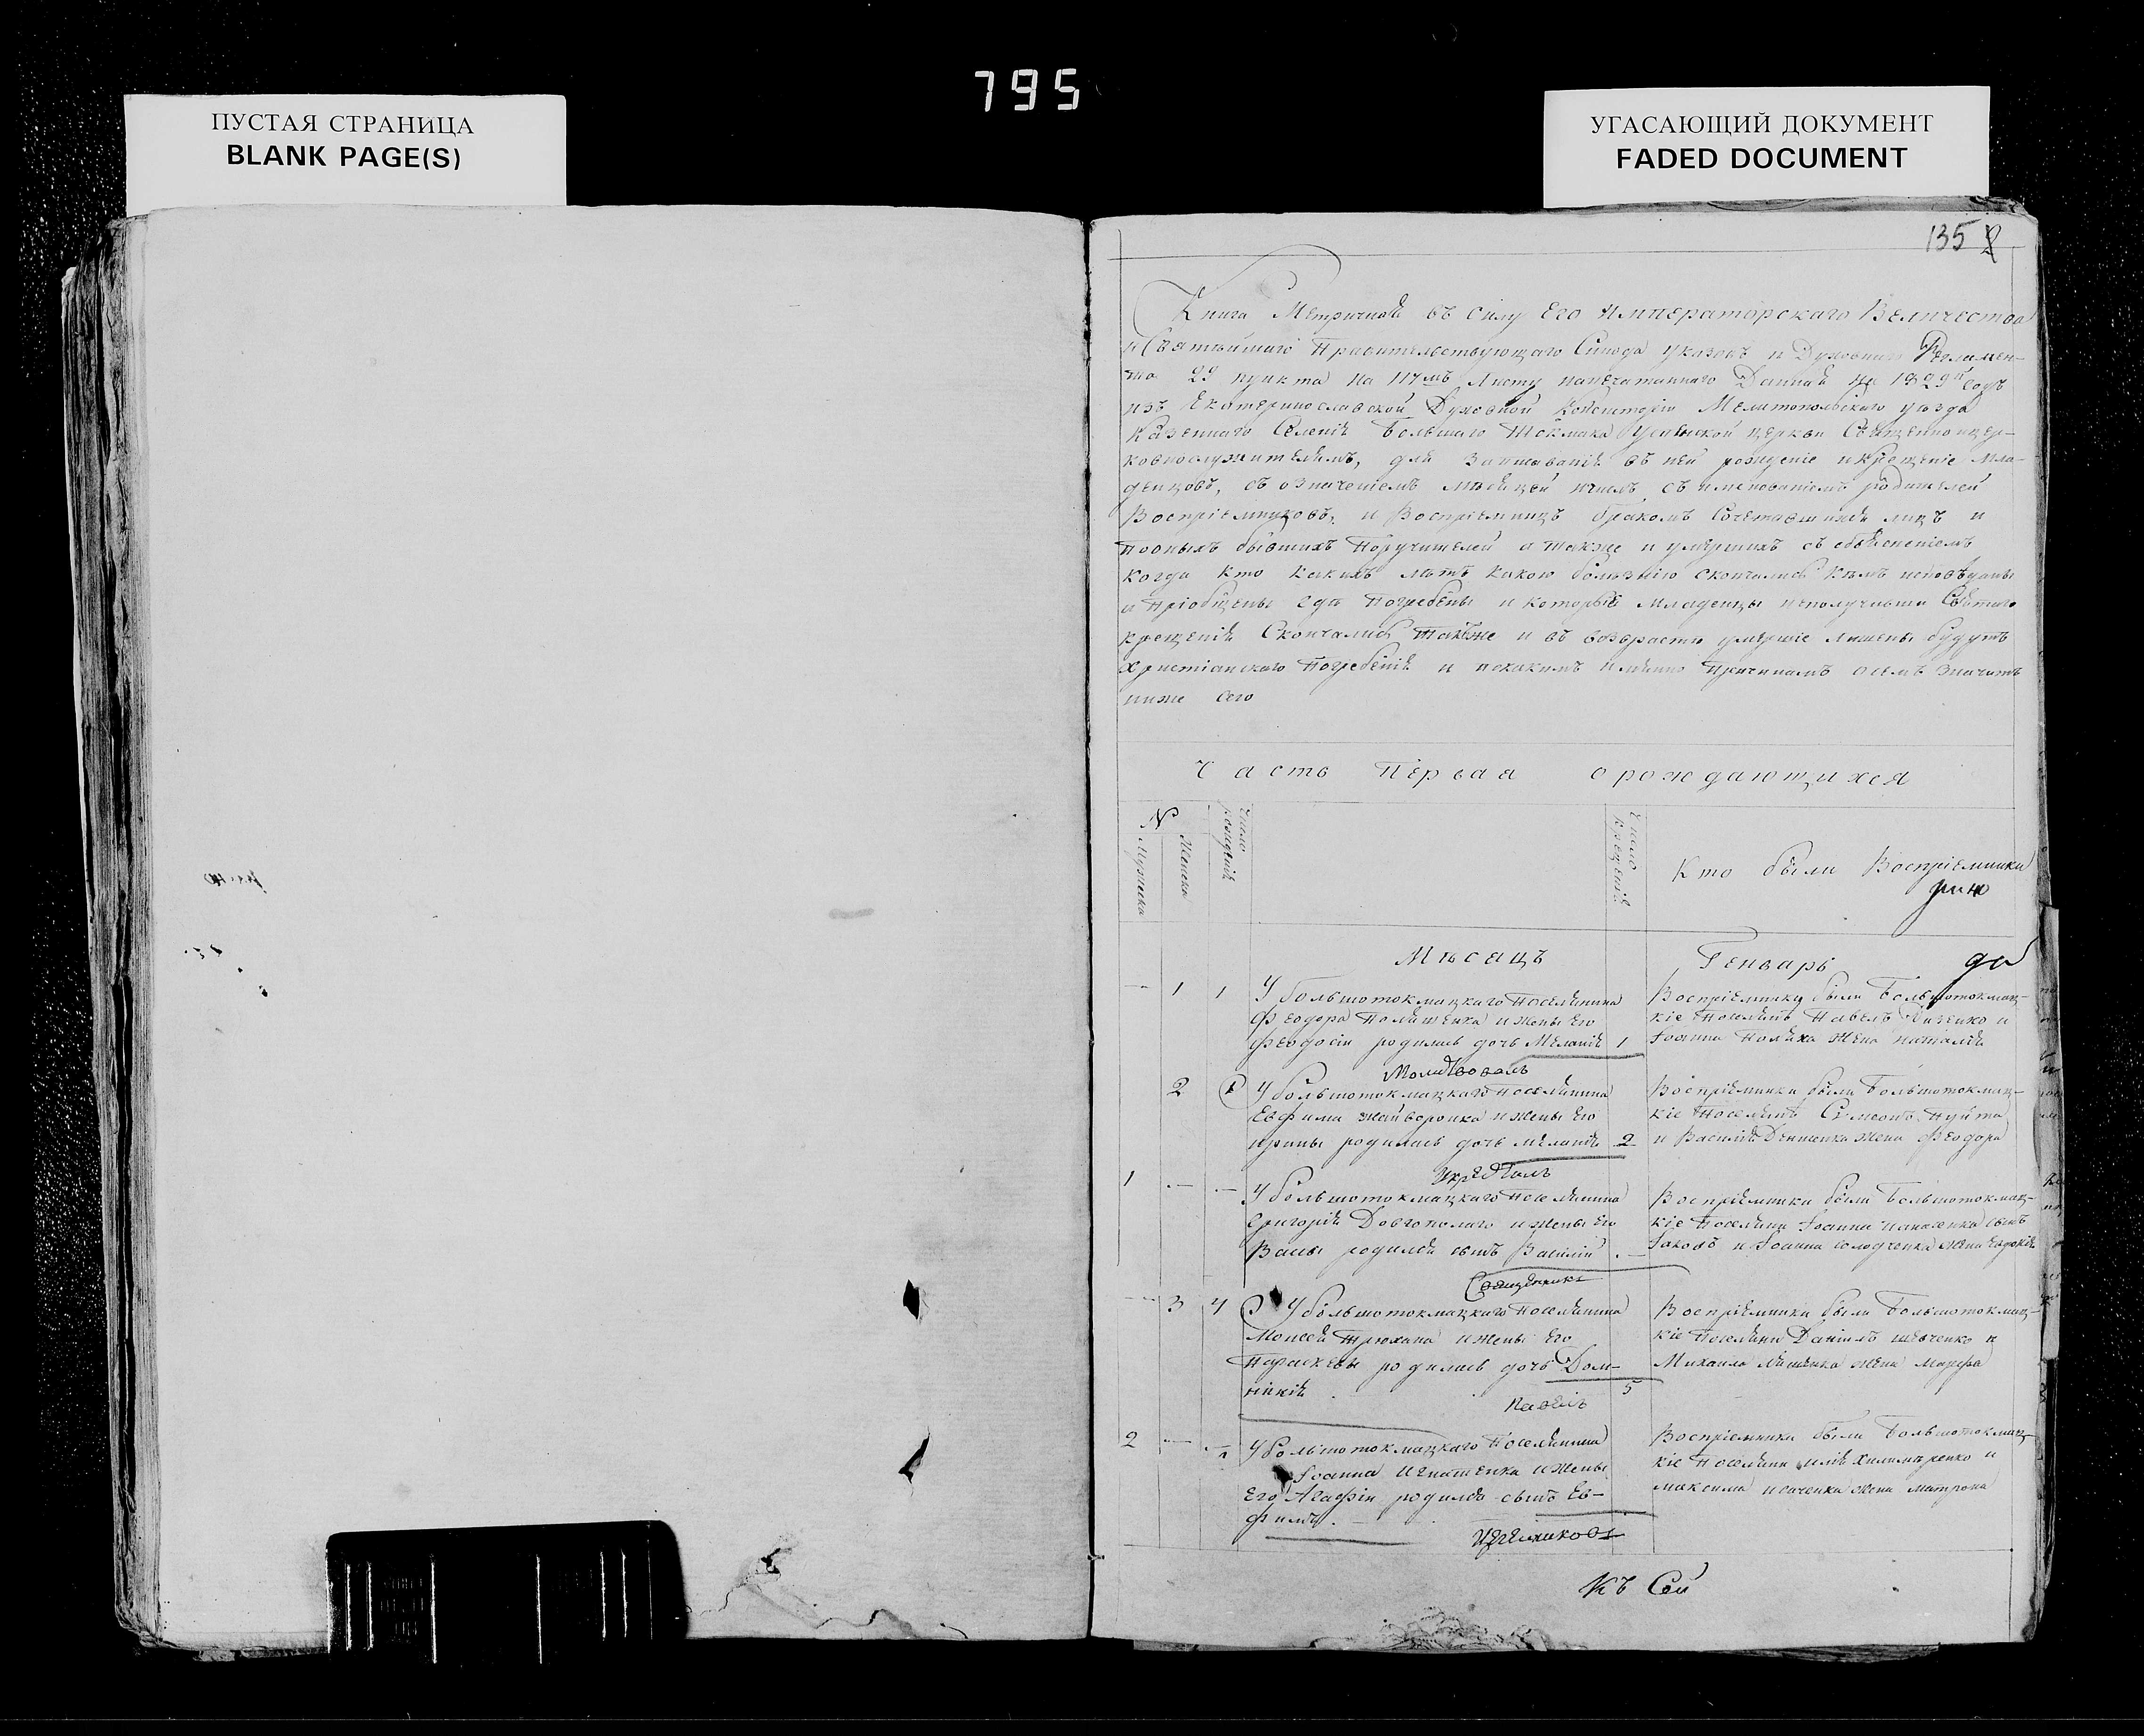 795
ПУСТАЯ СТРАНИЦА
BLANK PAGE(S)
УГАСАЮЩИЙ ДОКУМЕНТ
FADED DOCUMENT
135
Книга Метричная въ силу Его Императорскаго Величества
и Святѣйшаго Правительствующаго Синода указовъ и Духовнаго Регламен-
та 29 пункта на листу напечатаннаго Данная на 1829й годъ
изъ Екатеринославской Духовной Консисторіи Мелитопольскаго уезда
Казеннаго Селенія Большаго Токмака Успенской церкви Священноцер-
ковнослужителямъ, для записыванія въ ней рожденіе и крещеніе мла-
денцовъ, съ означеніемъ мѣсяцей и чиселъ, съ именованіемъ родителей
Воспріемниковъ, и Воспріемницъ бракомъ Сочетавшихся лицъ и
по оныхъ бывшихъ Поручителей а также и умершихъ съ объясненіемъ
когда кто какихъ лѣтъ какою болезнію скончались кѣмъ исповѣданы
и Пріобщены где Погребены и которые Младенцы неполучивши Святаго
крещенія Скончались также и въ возрасте умершіе лишены будутъ
Христіанскаго Погребенія и по какимъ именно Причинамъ о семъ значитъ
ниже сего
Часть Первая о рождающихся
№
Мужеска
Женска
Число рожденія
Число крещенія
Кто были Воспріемники
Мѣсацъ Генварь
да
— 1 1 У большотокмацкаго поселянина
Феодора и жены Его
Феодосіи родилась дочь Меланія 1
Воспріемники были Большотокмац-
кіе поселянъ Павелъ и
Іоанна жена Наталія
Молитвовалъ
2 1 У большотокмацкаго поселянина
Евфима Жайворонка и жены Его
Ирины родилась дочь Меланія 2
Воспріемники были Большотокмац-
кіе поселянъ Симеонъ
и Василія жена Феодора
и крестилъ
1 — — У большотокмацкаго поселянина
Григорія Довгополаго и жены Его
родился сынъ Василій —
Воспріемники были Большотокмац-
кіе поселяни Іоанна сынъ
Іаковъ и Іоанна жена Евдокія
Священникъ
— 3 4 У большотокмацкаго поселянина
Моисея и жены Его
Параскевы родилась дочь Дом-
никія 5
Воспріемники были Большотокмац-
кіе поселяни Даніилъ Шевченко и
Михаила жена Марфа
Павелъ
2 — — У большотокмацкаго поселянина
Іоанна Игнатенка и жены
Его Агафіи родился сынъ Ев-
фимъ.
Воспріемники были Большотокмац-
кіе поселяни и
Максима Исаченка жена Матрона
Къ Сей